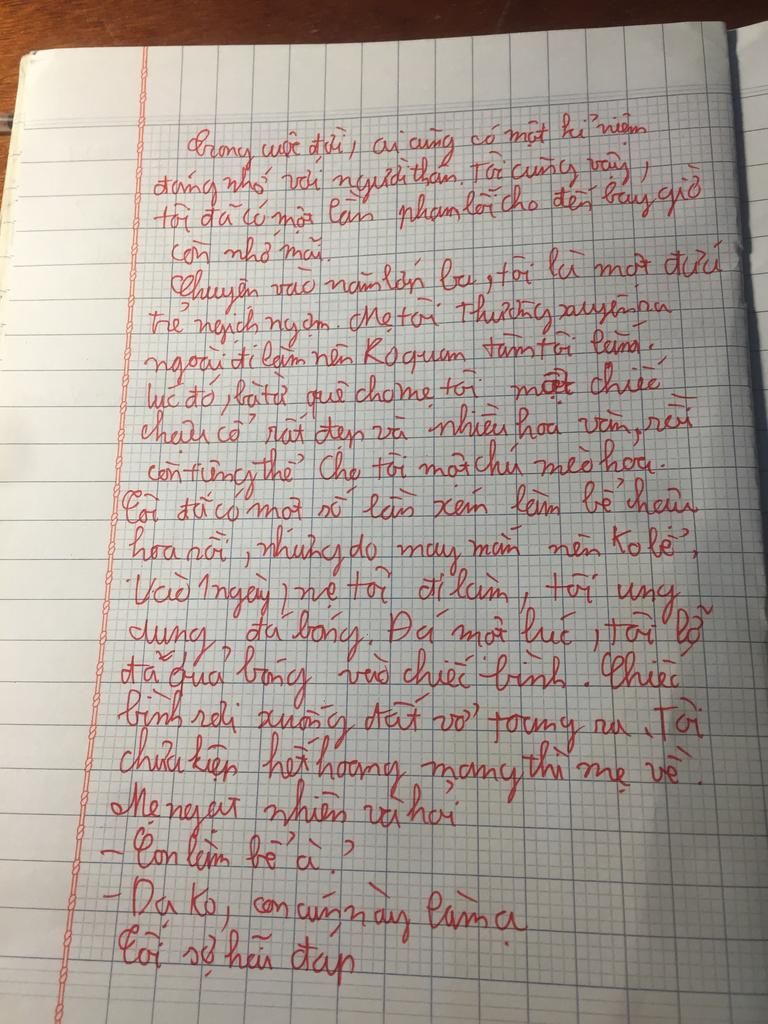 Trong cuộc đời, ai cũng có một kỉ niệm
đáng nhớ với người thân. Tôi cũng vậy,
tôi đã có một lần phạm lỗi cho đến bây giờ
còn nhớ mãi.
Chuyện vào năm lớp ba, tôi là một đứa
trẻ nghịch ngợm. Mẹ tôi thường xuyên ra
ngoài đi làm nên Ko quan tâm tôi lắm.
lúc đó, bà từ quê cho mẹ tôi một chiếc
chậu cổ rất đẹp và nhiều hoa văn,
còn từng thể Cho tôi một chú mèo hoa.
Tôi đã có một số lần xém làm bể chậu
hoa rồi, nhưng do may mắn nên Ko bể.
Vào 1 ngày, mẹ tôi đi làm, tôi ung
dung đá bóng. Đá một lúc, tôi lỡ
đá quả bóng vào chiếc bình. Chiếc
bình rơi xuống đất vỡ toang ra. Tôi
chưa kịp hết hoang mang thì mẹ về.
Mẹ ngạt nhiên và hỏi
- Con làm bể à?
- Dạ Ko, con cún này làm ạ
Tôi sợ hãi đáp